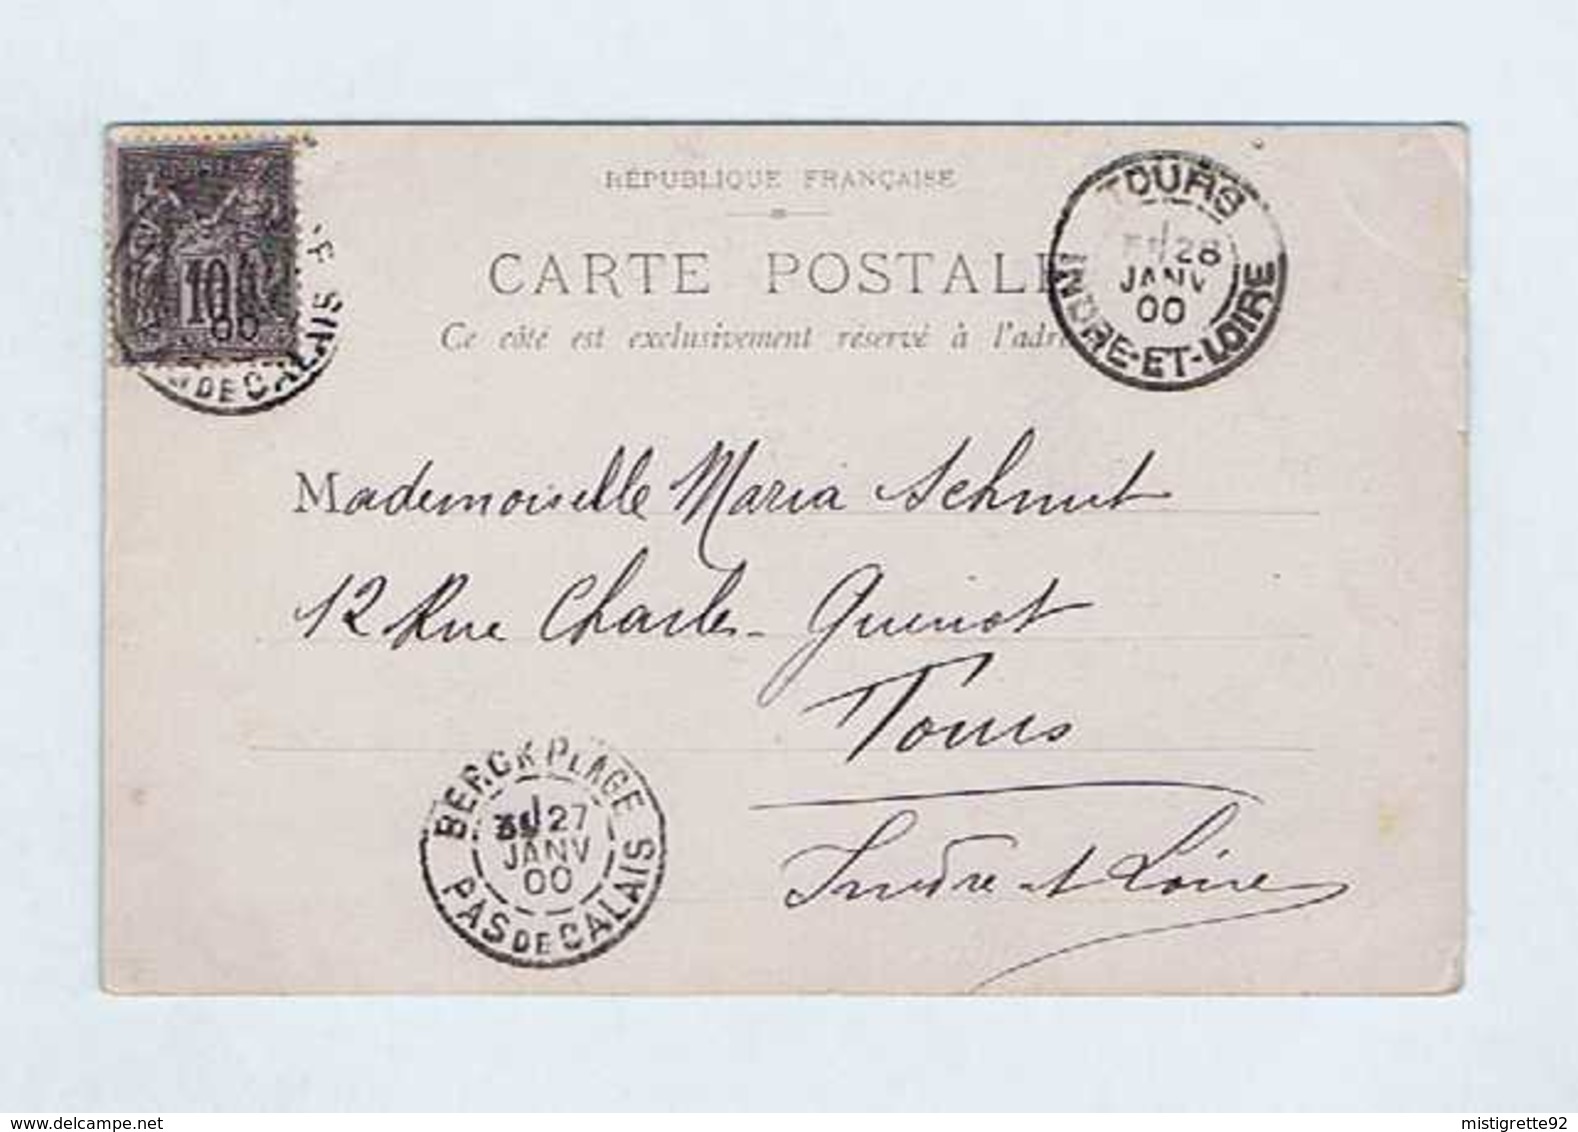 RÉPUBLIQUE FRANÇAISE
CARTE POSTALE
Ce côté est exclusivement réservé à l'adre
TOURS
28
JANV
00
INDRE-ET-LOIRE
10
00
DE CALAIS
Mademoiselle Maria Schmit
12 Rue Charles Guinot
Tours
Indre et Loire
BERCK PLAGE
27
JANV
00
PAS DE CALAIS
delcampe.net
mistigrette92